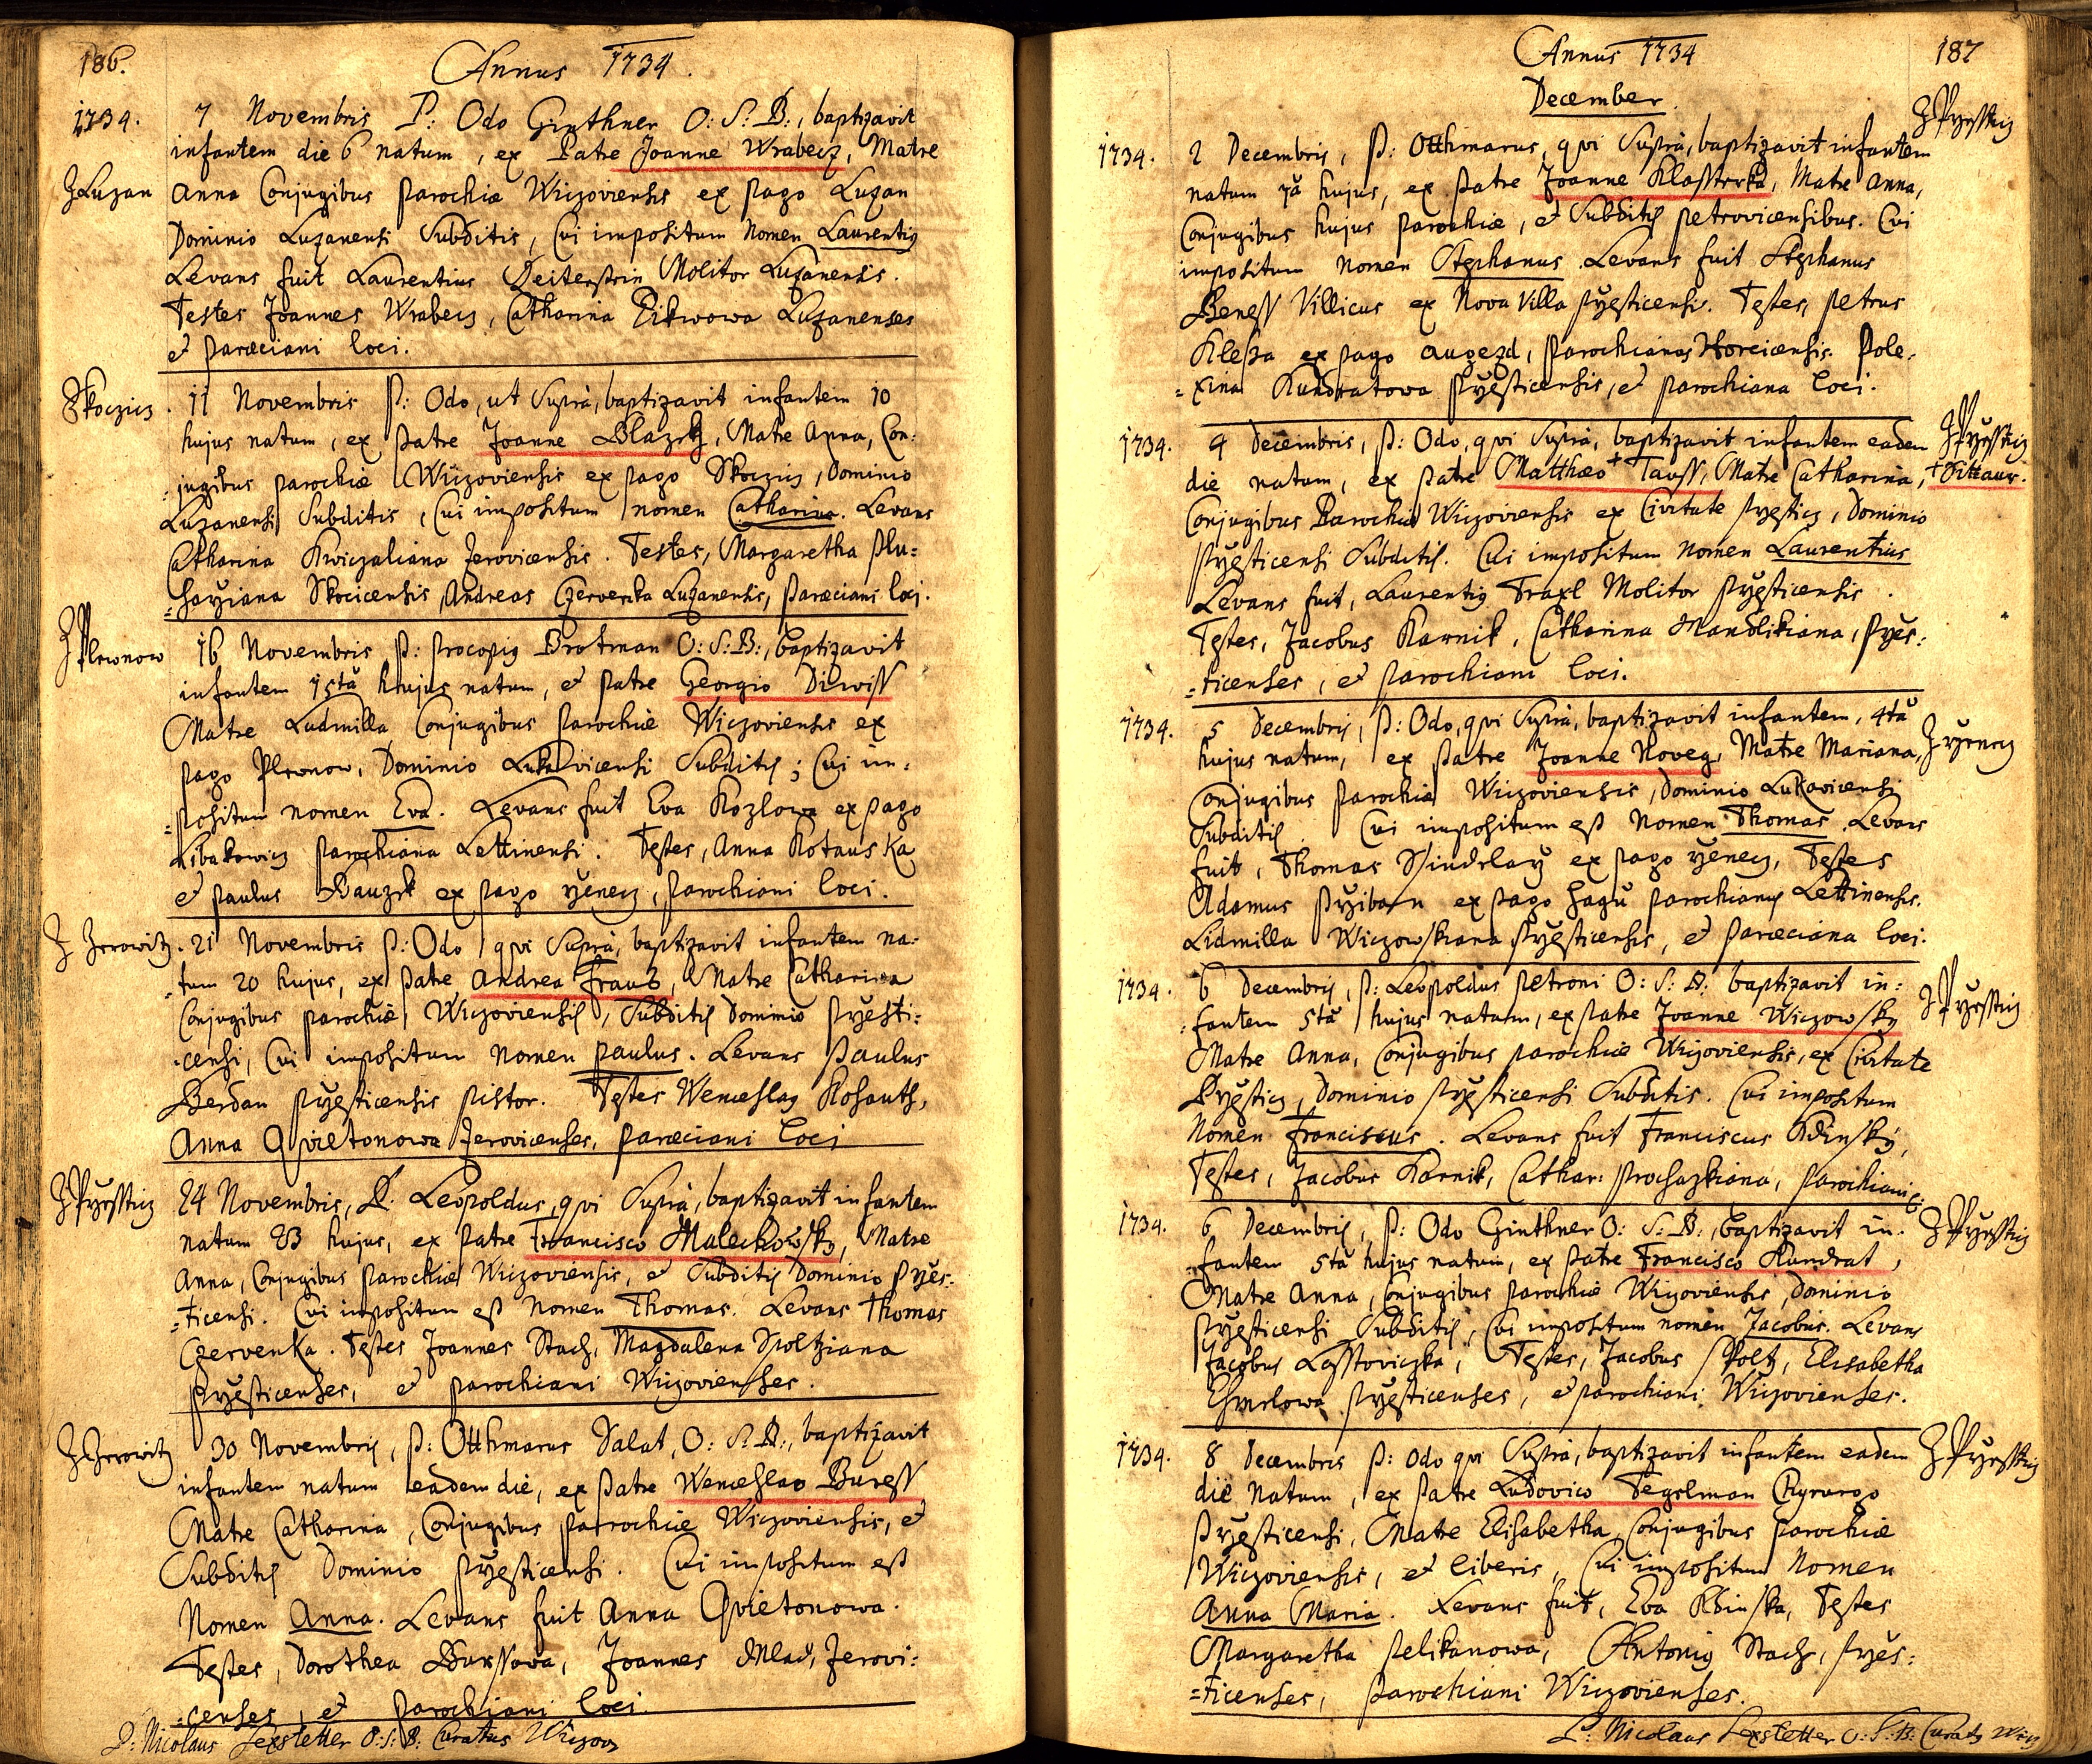 186.
Annus 1734.
1734.
7 Novembris P: Odo Ginthner O: S: B:, baptizavit
infantem die 6 natum, ex Patre Joanne Wrabecz, Matre
Z Luzan
Anna Conjugibus parochiæ Wiczoviensis ex pago Luzan
Dominio Luzanensi Subditis, Cui impositum Nomen Laurentig
Levans fuit Laurentius Molitor Luzanensis.
Testes Joannes Wrabecz, Catharina Luzanenses
et paræciani loci.
Skoczicz
11 Novembris P: Odo, ut Suprà, baptizavit infantem 10
hujus natum, ex patre Joanne Blazek, Matre Anna, Con:
=jugibus parochiæ Wiczoviensis ex pago Skoczicz, Dominio
Luzanensi Subditis, Cui impositum nomen Catharina. Levans
Catharina Kwiczaliana Jerovicensis. Testes, Margaretha Plu=
Skocicensis, Andreas Czervenka Luzanensis, paræciani loci.
Z Plewnow
16 Novembris P: Procopig Brotman O: S: B:, baptizavit
infantem 15tâ hujus natum, et patre Georgio Diwiss
Matre Ludmilla Conjugibus parochiæ Wiczoviensis ex
pago Plewnow, Dominio Lukavicensi Subditis; Cui im=
=positum nomen Eva. Levans fuit Eva Kozlowa ex pago
Libakowicz parochiana Lettinensi. Testes, Anna Kotauska
et Paulus Bauzek ex pago yenecz, parochiani loci.
Z Jerowitz
21 Novembris P: Odo, qui Suprà, baptizavit infantem na=
=tum 20 hujus, ex patre Andrea Traub, Matre Catharina
Conjugibus parochiæ Wiczoviensis, Subditis Dominio Pržesti=
=censi, Cui impositum Nomen Paulus. Levans Paulus
Berdan Pržesticensis pistor. Testes Wenceslag Kohauth,
Anna Qvietonowa Jerovicenses, paræciani loci
Z Pržessticz
24 Novembris, P: Leopoldus, qui Suprà, baptizavit infantem
natum 23 hujus, ex patre Francisco Malechowsky, Matre
Anna, Conjugibus parochiæ Wiczoviensis, et Subditis Dominio Pržes=
=ticensi. Cui impositum est Nomen Thomas. Levans Thomas
Czervenka. Testes Joannes Stach, Magdalena Spoltziana
Pržesticenses, et parochiani Wiczovienses.
Z Jerowitz
30 Novembris, P: Otthmarus Salat, O: S: B:, baptizavit
infantem natum eadem die, ex patre Wenceslao Buress
Matre Catharina, Conjugibus parrochiæ Wiczoviensis, et
Subditis Dominio Pržesticensi. Cui impositum est
Nomen Anna. Levans fuit Anna Qvietonowa.
Testes, Dorothea Buressova, Joannes Mlad, Jerovi:
=censes, et parochiani loci.
P: Nicolaus Lexstetter O: S: B: Curatus Wiczov
Annus 1734
187
December.
Z Pržessticz
1734.
2 Decembris, P: Otthmarus, qui Suprà, baptizavit infantem
natum 1â hujus, ex patre Joanne Klasstrrka, Matre Anna,
Conjugibus hujus parochiæ, et Subditis petrovicensibus. Cui
impositum Nomen Stephanus. Levans fuit Stephanus
Beness Villicus ex Nova Villa Pržesticensi. Testes, Petrus
Klepza ex pago Augezd, parochianus Horcicensis. Pole=
=xina Kundratowa Pržesticensis, et parochiana loci.
Z Pržessticz
1734.
4 Decembris, P: Odo, qui Suprà, baptizavit infantem eadem
die natum, ex patre Matthæo † Tauss, Matre Catharina, † Dittaur.
Conjugibus Parochiæ Wiczoviensis ex Civitate Pržesticz, Dominio
Pržesticensi Subditis. Cui impositum Nomen Laurentius
Levans fuit, Laurentig Traxl Molitor Pržesticensis.
Testes, Jacobus Karnik, Catharina Mandlikiana, Pržes:
=ticenses, et parochiani loci.
1734.
5 Decembris, P: Odo, qui Suprà, baptizavit infantem, 4tâ
hujus natum, ex patre Joanne Noveg, Matre Mariana,
Z yenecz
Conjugibus parochiæ Wiczoviensis, Dominio Lukavicensi
Subditis. Cui impositum est Nomen Thomas. Levans
fuit, Thomas Ssindelarž ex pago yenecz, Testes
Adamus Pržiban ex pago Hagu parochianus Lettinensis.
Lidmilla Wiczowskiana Pržesticensis, et paræciana loci.
1734.
6 Decembris, P: Leopoldus Petroni O: S: B: baptizavit in:
=fantem 5tâ hujus natum, ex patre Joanne Wiczowsky
Z Pržessticz
Matre Anna, Conjugibus parochiæ Wiczoviensis, ex Civitate
Pržesticz, Dominio Pržesticensi Subditis. Cui impositum
Nomen Franciscus. Levans fuit Franciscus Kdinsky,
Testes, Jacobus Karnik, Cathar: Prochazkiana, parochiani
1734.
6 Decembris, P: Odo Ginthner O: S: B:, baptizavit in:
Z Pržessticz
=fantem 5tâ hujus natum, ex patre Francisco Kundrat,
Matre Anna, Conjugibus parochiæ Wiczoviensis, Dominio
Pržesticensi Subditis, Cui impositum nomen Jacobus. Levans
Jacobus Losstoviczka, Testes, Jacobus Spoltz, Elisabetha
Chmelowa Pržesticenses, et parochiani Wiczovienses.
1734.
8 Decembris P: Odo qui Suprà, baptizavit infantem eadem
Z Pržessticz
die Natum, ex patre Ludovico Tegelman Chyrurgo
Pržesticensi, Matre Elisabetha, Conjugibus parochiæ
Wiczoviensis, et liberis, Cui impositum Nomen
Anna Maria. Levans fuit, Eva Kdinska, Testes
Margaretha Pelikanowa, Antonig Stach, Pržes:
=ticenses, parochiani Wiczovienses.
P: Nicolaus Lexstetter O: S: B: Curatg Wicz